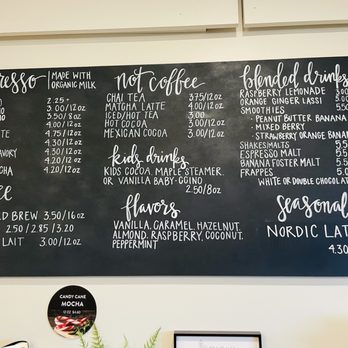 resso MADE WITH
ORGANIC MILK
2.25
3.00/12oz
3.50/8oz
4.00/12oz
4.75/12oz
4.30/12oz
AVORY 4.20/12oz
4.20/12oz
CHA 4.20/12oz
D BREW 3.50/16oz
2.50/2.85/3.20
LAIT 3.00/12oz
not coffee
CHAI TEA 3.75/12oz
MATCHA LATTE 4.00/12oz
ICED/HOT TEA 3.00
HOT COCOA 3.00/12oz
MEXICAN COCOA 3.00/12oz
kids drinks
KIDS COCOA, MAPLE STEAMER,
OR VANILLA BABY-CCINO
2.50/8oz
flavors
VANILLA, CARAMEL, HAZELNUT,
ALMOND, RASPBERRY, COCONUT,
PEPPERMINT
blended drinks
RASPBERRY LEMONADE
ORANGE GINGER LASSI
SMOOTHIES
- PEANUT BUTTER BANANA
- MIXED BERRY
- STRAWBERRY ORANGE BANA
SHAKES/MALTS
ESPRESSO MALT
BANANA FOSTER MALT
FRAPPES
WHITE OR DOUBLE CHOCOLAT
seasonal
NORDIC LAT
4.30
CANDY CANE
MOCHA
12 OZ $4.60